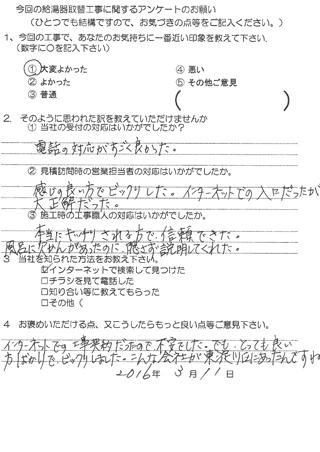 今回の給湯器取替工事に関するアンケートのお願い
(ひとつでも結構ですので、お気づきの点等をご記入ください。)
1、今回の工事で、あなたのお気持ちに一番近い印象を教えて下さい.
(数字に○を記入下さい)
①大変よかった ④悪い
②よかった ⑤その他ご意見
③普通 ( )
2. そのように思われた訳を教えていただけませんか
①当社の受付の対応はいかがでしたか?
電話の対応がすごく良かった。
②見積訪問時の営業担当者の対応はいかがでしたか。
感じの良い方でビックリした。インターネットでの入口だったが
大正解だった。
③施工時の工事職人の対応はいかがでしたか。
本当にキッチリされる方で、信頼できた。
風呂に があったのに、隠さず説明してくれた。
3 当社を知られた方法をお教え下さい。
☑インターネットで検索して見つけた
□チラシを見て電話した
□知り合い等に教えてもらった
□その他(
4 お褒めいただける点、又こうしたらもっと良い点等ご意見下さい。
インターネットでの 契約だったので不安でした。でも、とっても良い
方ばかりで、ビックリしました。こんな会社が東淀川区にあったんですね
2016年3月11日